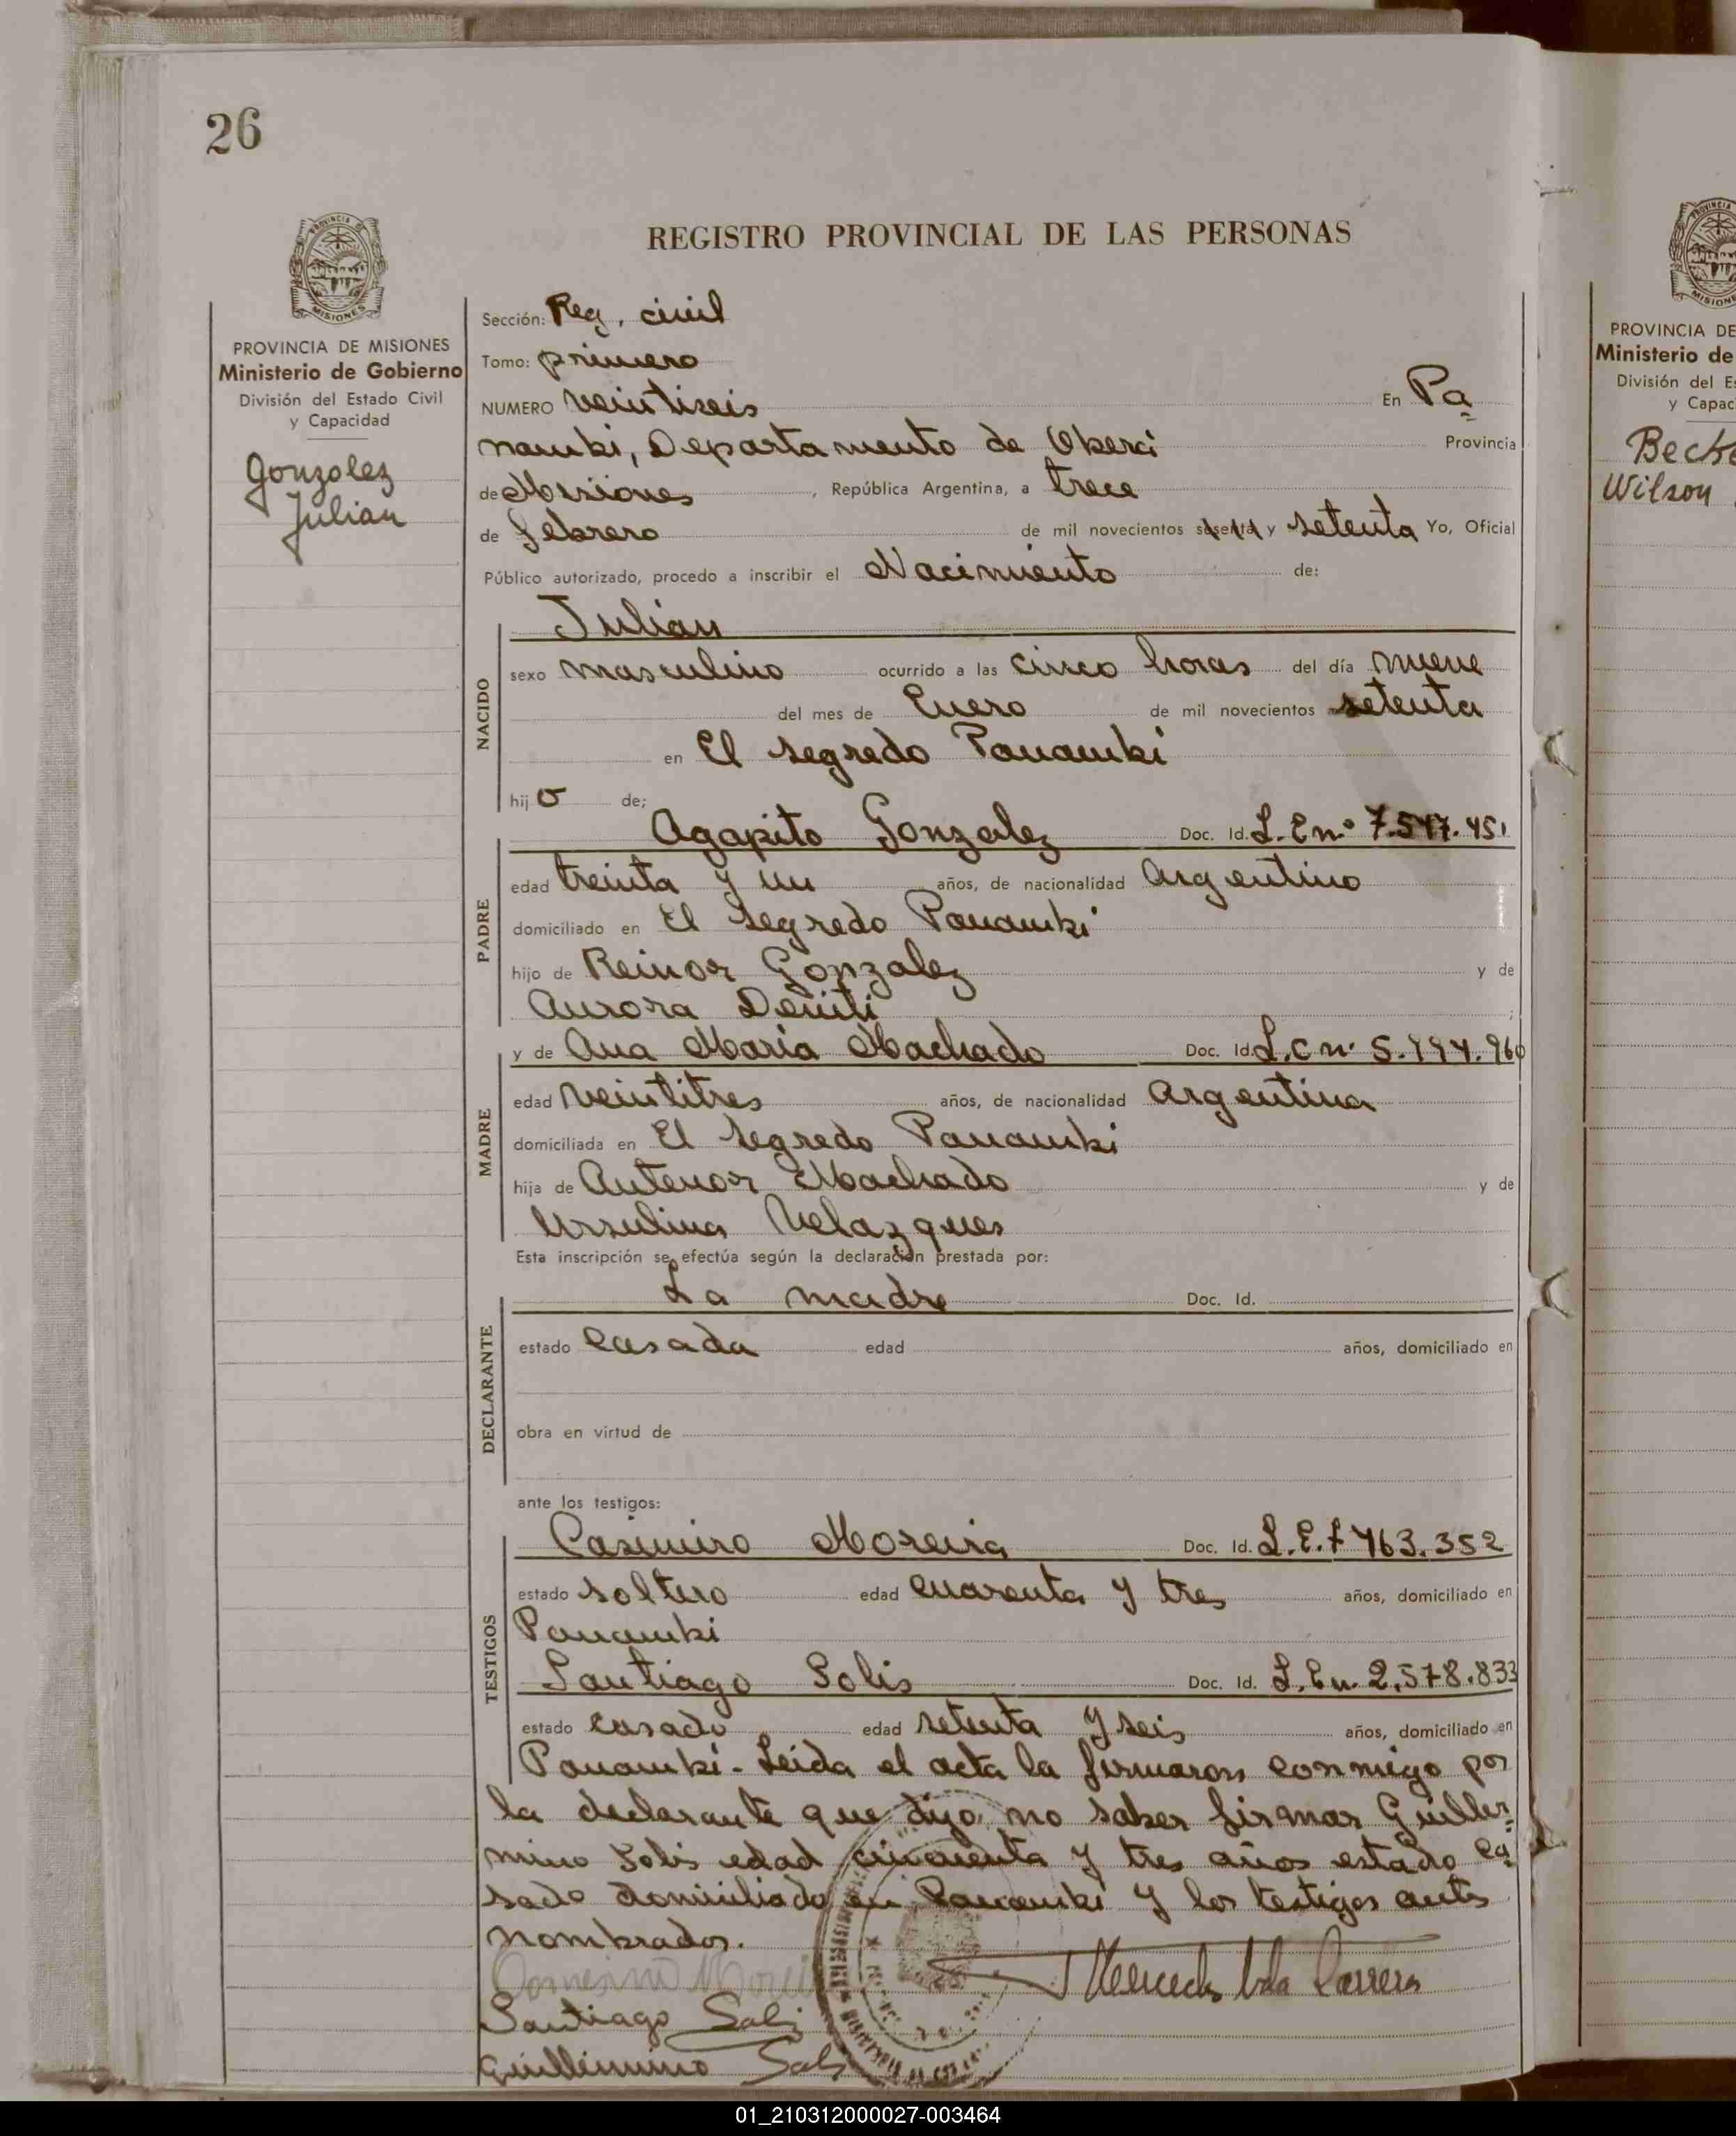 26
REGISTRO PROVINCIAL DE LAS PERSONAS
PROVINCIA DE MISIONES
Ministerio de Gobierno
División del Estado Civil
y Capacidad
Gonzolez
Julian
Sección: Reg. civil
Tomo: primero
NUMERO veintiseis En Pa
nambi, Departamento de Oberá Provincia
de Misiones, República Argentina, a trece
de febrero de mil novecientos sesenta y setenta Yo, Oficial
Público autorizado, procedo a inscribir el Nacimiento de:
Julián
NACIDO
sexo masculino ocurrido a las cinco horas del día nueve
del mes de Enero de mil novecientos setenta
en El segredo Panambi
hijo de:
PADRE
Agapito Gonzalez Doc. Id. L. E nº 7.547.451
edad treinta y un años, de nacionalidad Argentino
domiciliado en El segredo Panambi
hijo de Reinor Gonzalez y de
Aurora
MADRE
y de Ana Maria Machado Doc. Id. L.C nº
edad veintitres años, de nacionalidad Argentina
domiciliada en El segredo Panambi
hija de Antenor Machado y de
Ursulina Velazques
Esta inscripción se efectúa según la declaración prestada por:
DECLARANTE
La madre Doc. Id.
estado Casada edad años, domiciliado en
obra en virtud de
ante los testigos:
TESTIGOS
Casimiro Moreira Doc. Id. L.E. 763.352
estado soltero edad cuarenta y tres años, domiciliado en
Panambi
Santiago Solis Doc. Id. L.E n. 2.578.833
estado casado edad setenta y seis años, domiciliado en
Panambi - Leida el acta la firmaron conmigo por
la declarante que dijo no saber firmar Guiller-
mino Solis edad cincuenta y tres años estado ca
sado domiciliado en Panambi y los testigos antes
nombrados.
Santiago Solis
Guillermino Solis
PROVINCIA DE
Ministerio de
División del Es
y Capac
Beck
Wilson
01_210312000027-003464